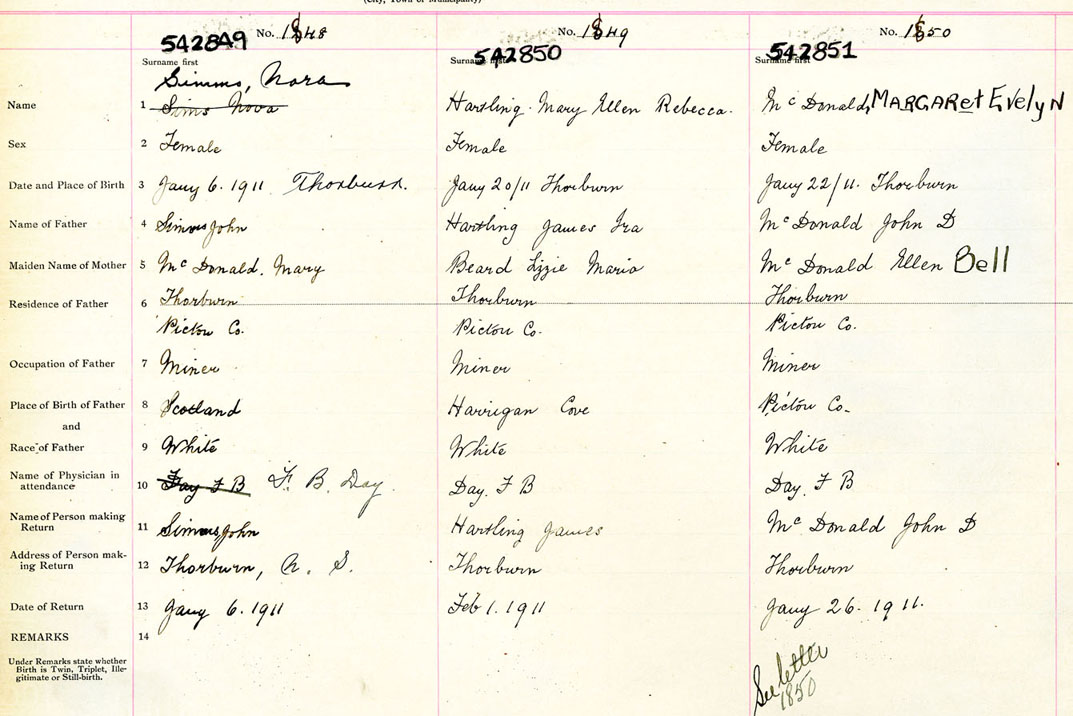 (City, Town or Municipality)
542849 No. 1848 542850 No. 1849 542851 No. 1850
Surname first Surname first Surname first
Simms, Nora
Name 1 Sims Nova Hartling Mary Ellen Rebecca. Mc Donald, MARGARet EvelyN
Sex 2 Female Female Female
Date and Place of Birth 3 Jany 6. 1911 Thorburn. Jany 20/11 Thorburn Jany 22/11. Thorburn
Name of Father 4 Simms John Hartling James Ira Mc Donald John D
Maiden Name of Mother 5 Mc Donald. Mary Beard Lizzie Maria Mc Donald Ellen Bell
Residence of Father 6 Thorburn Thorburn Thorburn
Pictou Co. Pictou Co. Pictou Co.
Occupation of Father 7 Miner Miner Miner
Place of Birth of Father 8 Scotland Harrigan Cove Pictou Co.
and
Race of Father 9 White White White
Name of Physician in
attendance 10 Day F B F. B. Day. Day. F B Day. F B
Name of Person making
Return 11 Simms John Hartling James Mc Donald John D
Address of Person mak-
ing Return 12 Thorburn, N. S. Thorburn Thorburn
Date of Return 13 Jany 6. 1911 Feb 1. 1911 Jany 26. 1911.
REMARKS 14
Under Remarks state whether
Birth is Twin, Triplet, Ille-
gitimate or Still-birth.
See letter
1850